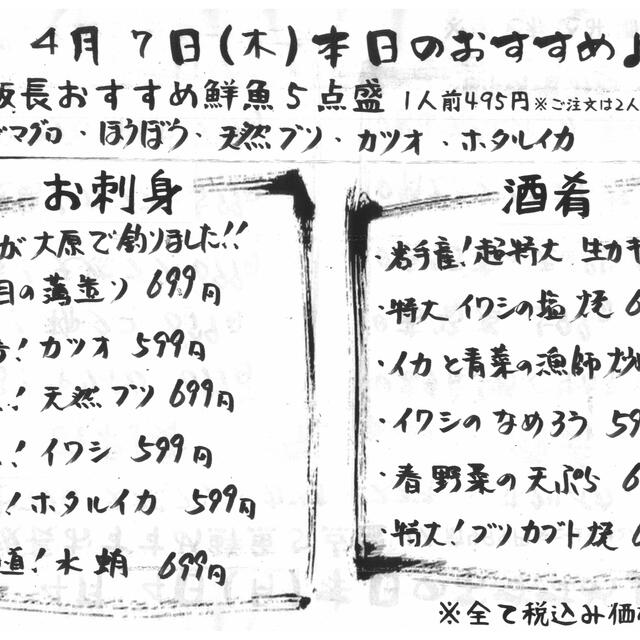 4月7日(木)本日のおすすめ♪
板長おすすめ鮮魚5点盛 1人前495円 ※ご注文は2人
マグロ・ほうぼう・天然ブリ・カツオ・ホタルイカ
お刺身
が大原で釣りました!!
目の薄造り 699円
!カツオ 599円
!天然ブリ 699円
!イワシ 599円
!ホタルイカ 599円
道!水蛸 699円
酒肴
・岩手産!超特大 生カキ
・特大イワシの塩焼
・イカと青菜の漁師炒
・イワシのなめろう 59
・春野菜の天ぷら
・特大!ブリカブト焼
※全て税込み価